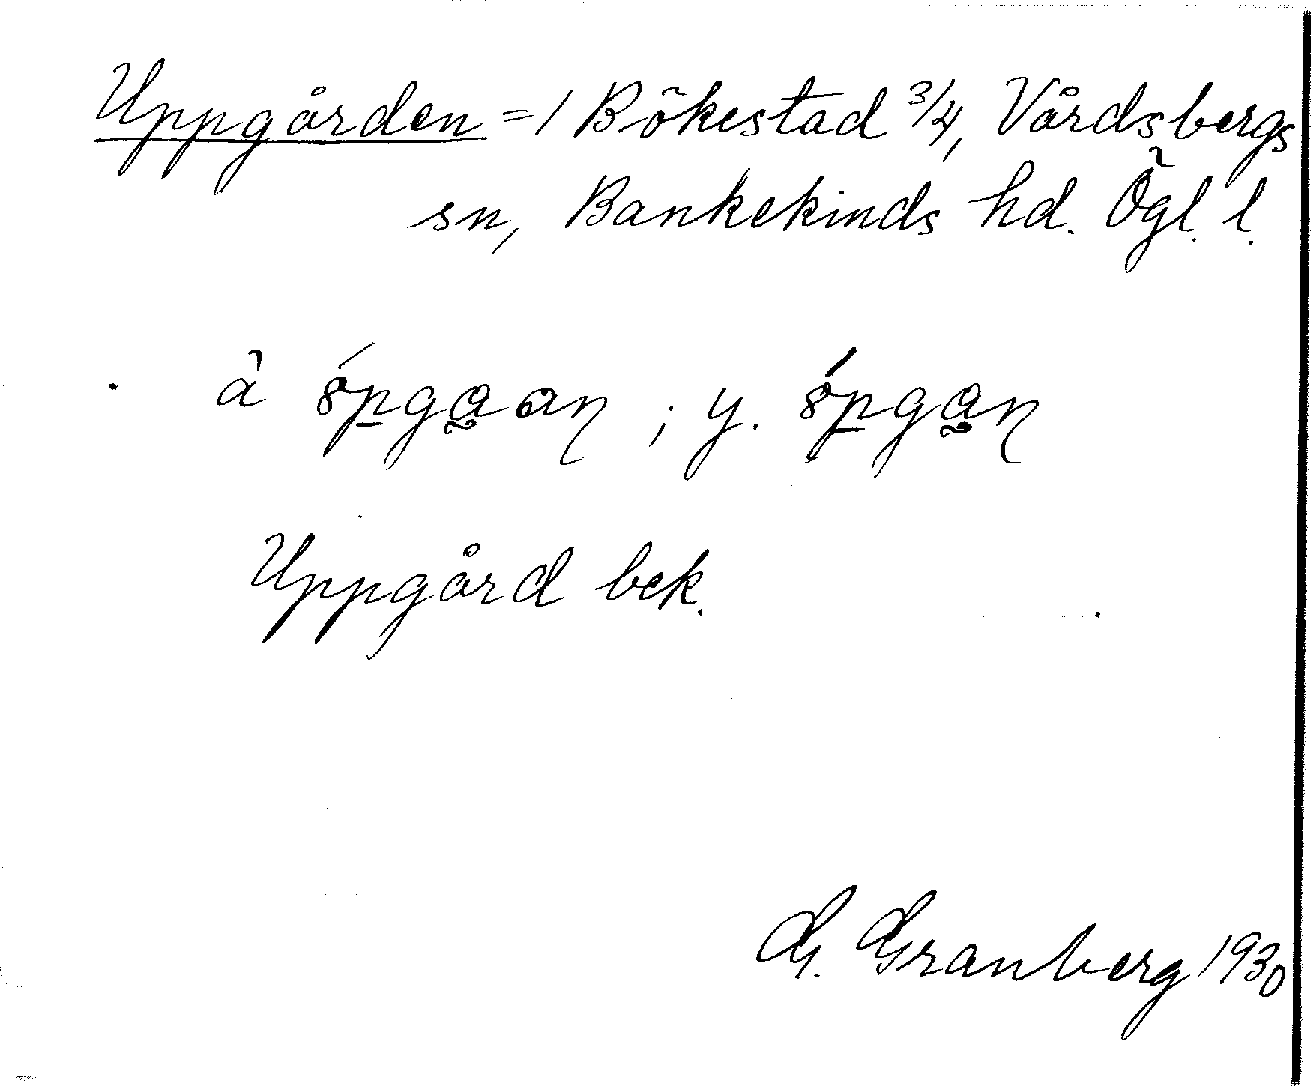 Uppgården = 1 Bökestad 3/4, Vårdsbergs
sn, Bankekinds hd. Ögl. l.
Uppgård bek.
G. Granberg 1930